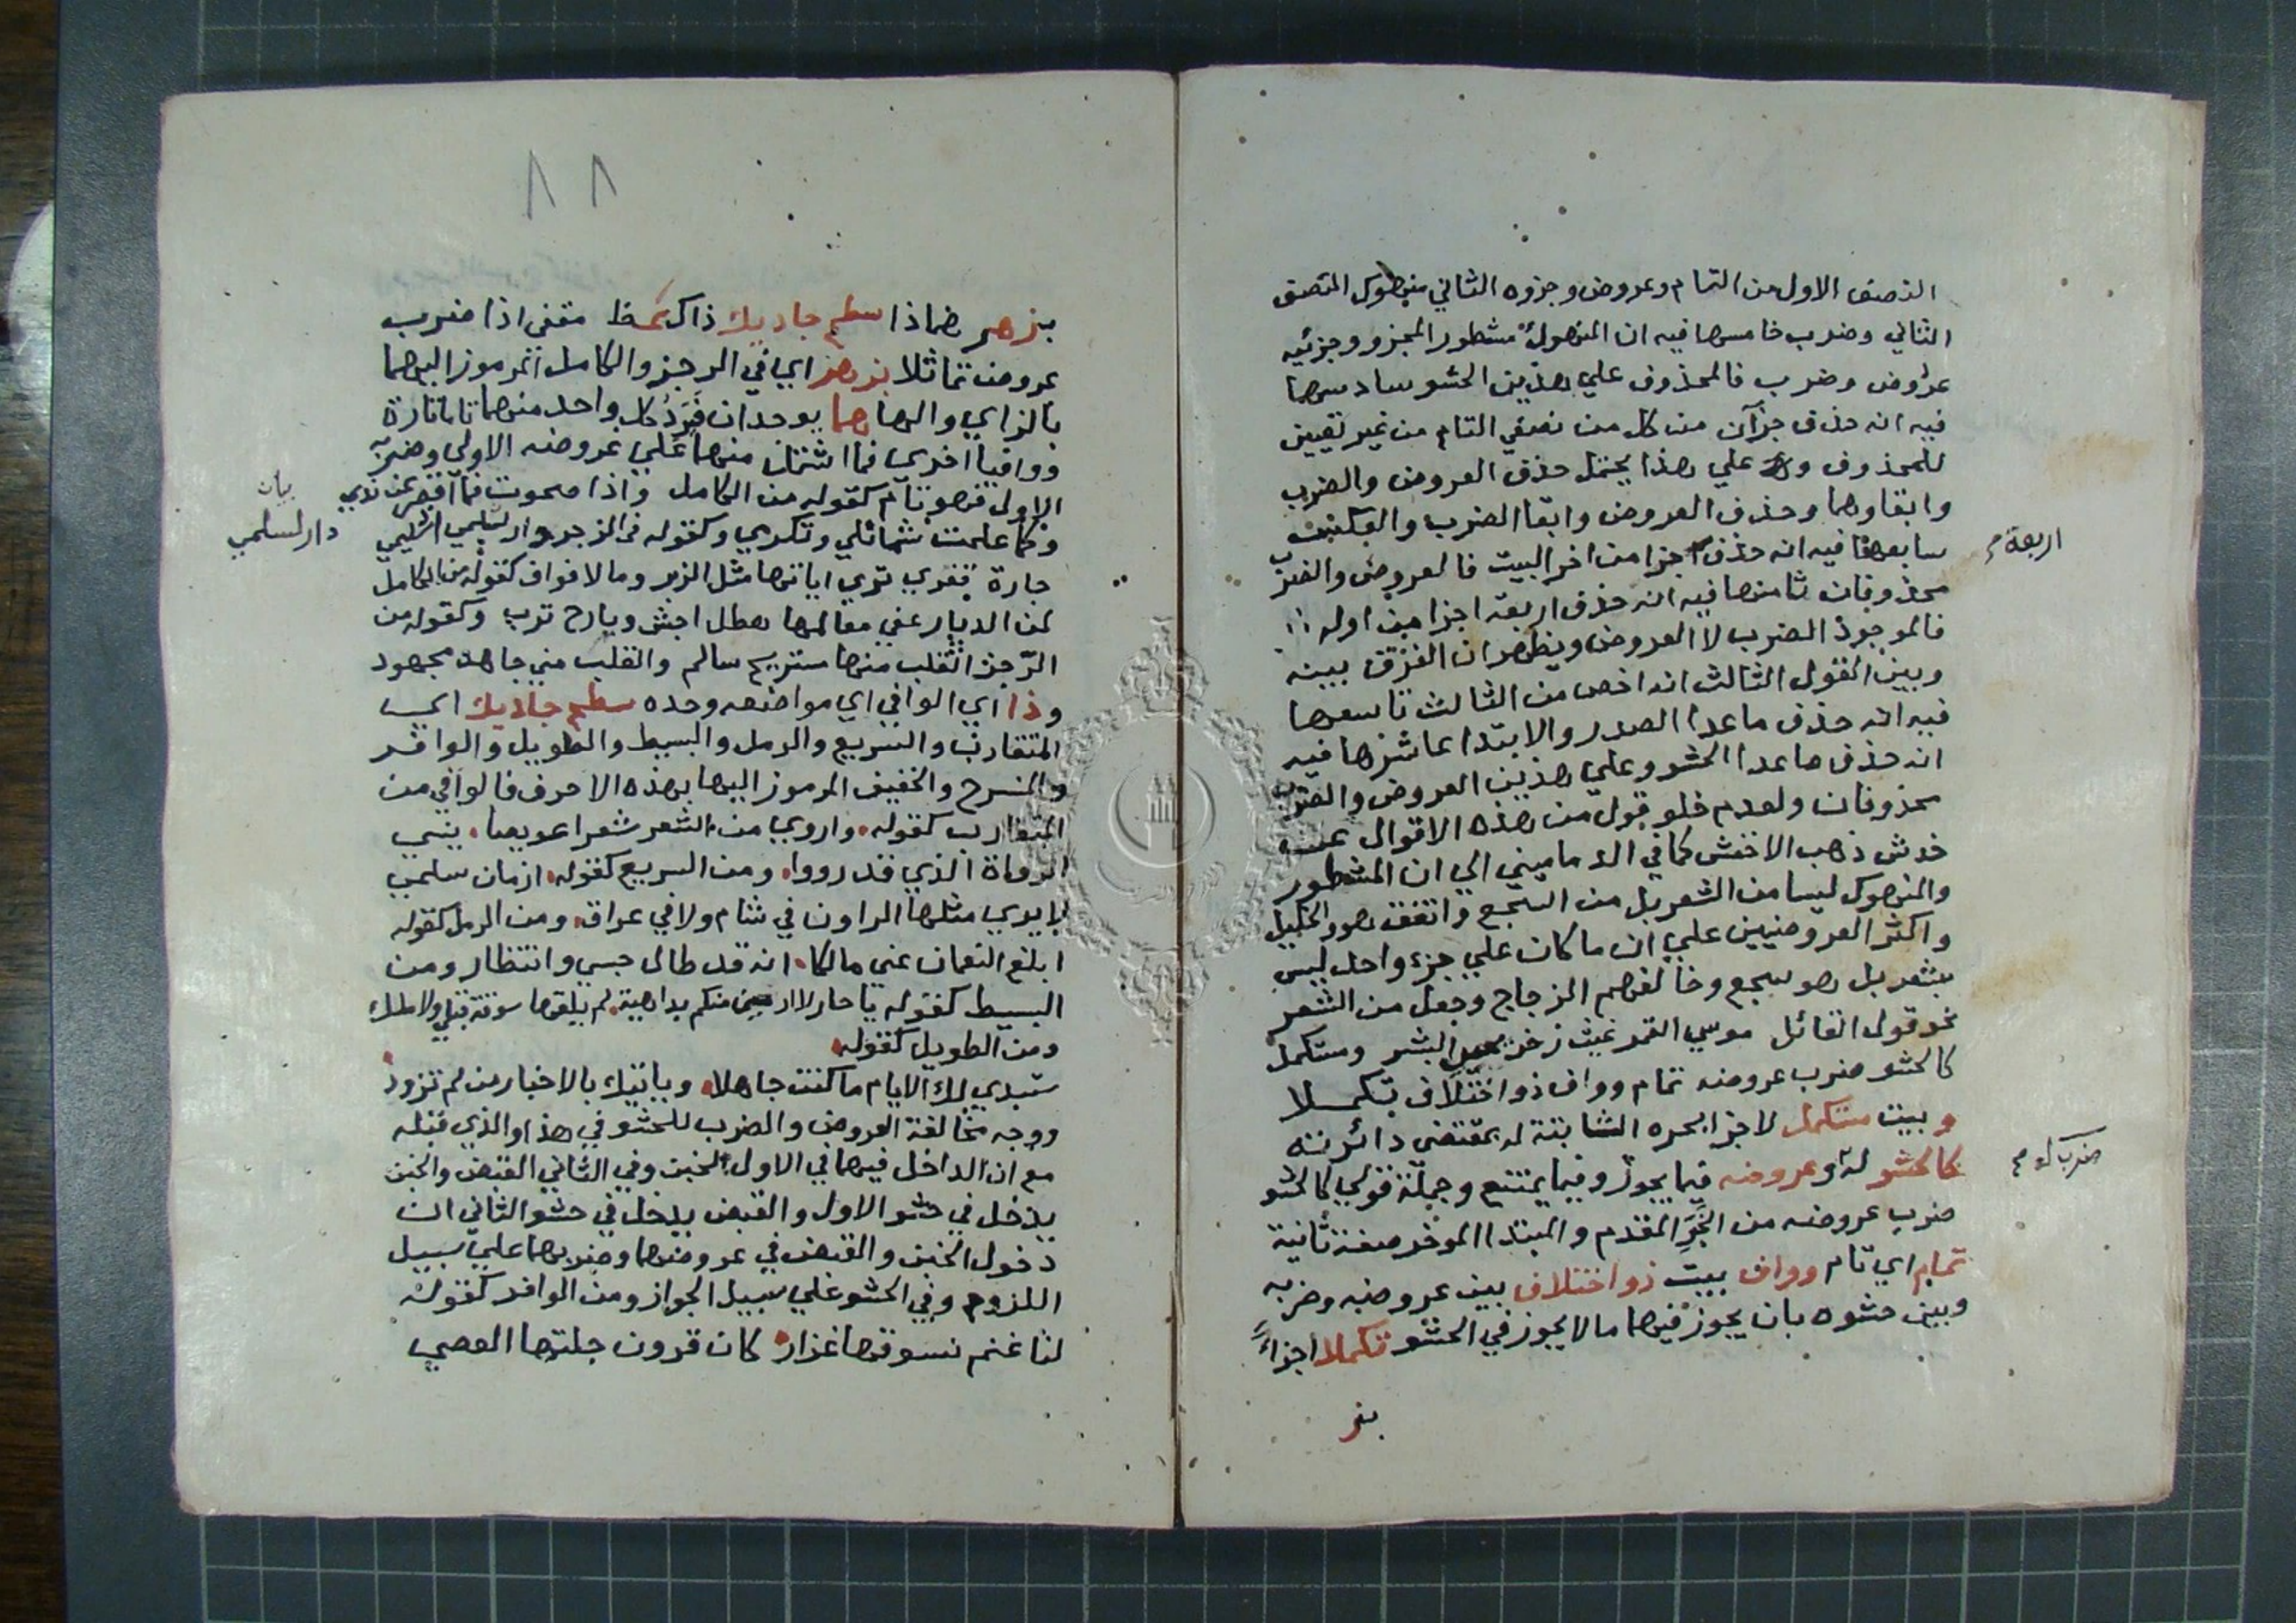 النصف الاول من التمام وعروض وجزوه الثاني منهوك النصف
الثاني وضرب خامسها فيه ان المنهوك مشطور المجزو وجزئيه
عروض وضرب فالمحذوف علي هذين الحشو سادسها
فيه انه حذف جزآن من كل من نصفي التام من غير تعيين
للمحذوف وعلي هذا يحتمل حذف العروض والضرب
وابقاوهما وحذف العروض وابقا الضرب والعكس
سابعها فيه انه حذف اجزا من اخر البيت فالعروض والضرب
اربعة
محذوفان ثامنها فيه انه حذف اربعة اجزا من اوله
فالموجود الضرب لا العروض ويظهر ان الفرق بينه
وبين القول الثالث انه اخص من الثالث تاسعها
فيه انه حذف ماعدا الصدر والابتدا عاشرها فيه
انه حذف ماعدا الحشو وعلي هذين العروض والضرب
محذوفان ولعدم خلو قول من هذه الاقوال عن
خدش ذهب الاخفش كما في الدماميني الي ان المشطور
والمنهوك ليسا من الشعر بل من السجع واتفق هو والخليل
واكثر العروضيين علي ان ما كان علي جزء واحد ليس
بشعر بل هو سجع وخالفهم الزجاج وجعل من الشعر
نحو قول القائل موسي القمر غيث زخر البشر ومستكمل
كالحشو ضرب عروضه تمام وواف ذو اختلاف تكملا
وبيت مستكمل لاجزا بحره الثابتة له بمقتضي دائرته
كالحشو له وعروضه فيما يجوز وفيما يمتنع وجملة قولي كالحشو
ضرب
ضرب عروضه من الخبر المقدم والمبتدا الموخر صفة ثانية
تمام اي تام وواف بيت ذو اختلاف بين عروضه وضربه
وبين حشوه بان يجوز فيهما ما لا يجوز في الحشو تكملا اجزاءً
بز
٨٨
بزهر هما ذا سطح جاديك ذاك مقفي اذا ضرب
عروض تماثلا بزهر اي في الرجز والكامل المرموز اليهما
بالزاي والها هما يوجدان فيرد كل واحد منهما تاما تارة
ووافيا اخري فما اشتمل منهما علي عروضه الاولي وضربه
الاول فهو تام كقوله من الكامل واذا صحوت فما اقصر عن ندي
وكما علمت شمائلي وتكرمي وكقوله في الرجز دار لسلمي اذ سليمي
بيان
دار لسلمي
جارة قفري تري اياتها مثل الزبر وما لا فواف كقوله من الكامل
لمن الديار عفي معالمها هطل اجش وبارح ترب وكقوله من
الرجز القلب منها مستريح سالم والقلب مني جاهد مجهود
وذا اي الوافي اي مواضعه وحده سطح جاديك اي
المتقارب والسريع والرمل والبسيط والطويل والوافر
والمنسرح والخفيف المرموز اليها بهذه الاحرف فالوافي من
المتقارب كقوله واروي من الشعر شعرا عويصا ينسي
الرواة الذي قد رووا ومن السريع كقوله ازمان سلمي
لا يري مثلها الراون في شام ولا في عراق ومن الرمل كقوله
ابلغ النعمان عني مالكا انه قد طال حبسي وانتظار ومن
البسيط كقوله يا حار لا ارمين منكم بداهية لم يلقها سوقة قبلي ولا ملك
ومن الطويل كقوله
ستبدي لك الايام ما كنت جاهلا وياتيك بالاخبار من لم تزود
ووجه مخالفة العروض والضرب للحشو في هذا والذي قبله
مع ان الداخل فيهما في الاول الخبن وفي الثاني القبض والخبن
يدخل في حشو الاول والقبض يدخل في حشو الثاني ان
دخول الخبن والقبض في عروضهما وضربهما علي سبيل
اللزوم وفي الحشو علي سبيل الجواز ومن الوافر كقوله
لنا غنم نسوقها غزار كان قرون جلتها العصي